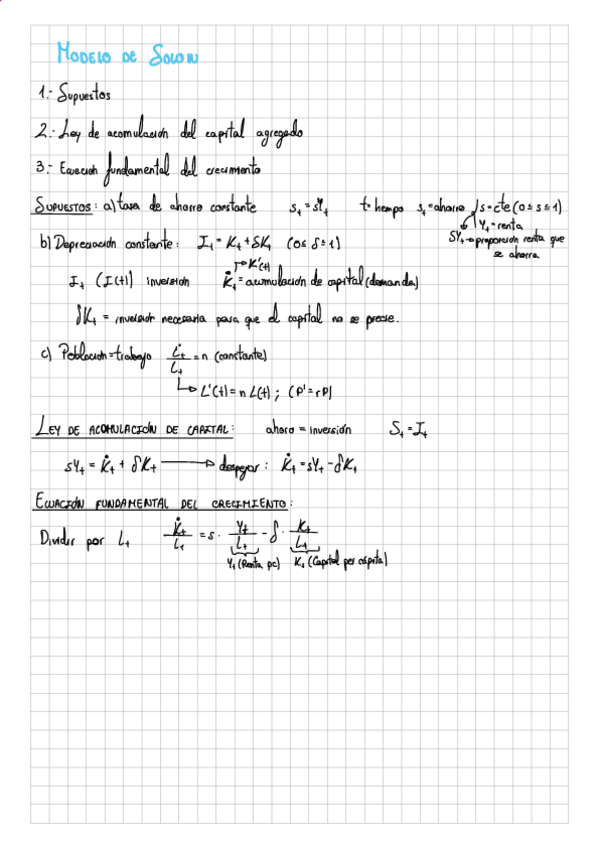 MODELO DE SOLOW
1.- Supuestos
2.- Ley de acomulación del capital agregado
3.- Ecuación fundamental del crecimiento
SUPUESTOS: a) tasa de ahorro constante sₜ = sYₜ t = tiempo sₜ = ahorro s = cte (0 ≤ s ≤ 1)
Yₜ = renta
SYₜ → proporción renta que
se ahorra
b) Depreciación constante: Iₜ = K̇ₜ + δKₜ (0 ≤ δ ≤ 1)
→ K'(t)
Iₜ (I(t)) inversión K̇ₜ = acumulación de capital (demanda)
δKₜ = inversión necesaria para que el capital no se precie.
c) Población = trabajo L̇ₜ/Lₜ = n (constante)
→ L'(t) = n L(t) ; (P' = rP)
LEY DE ACOMULACIÓN DE CAPITAL: ahorro = inversión Sₜ = Iₜ
sYₜ = K̇ₜ + δKₜ → despejar: K̇ₜ = sYₜ - δKₜ
ECUACIÓN FUNDAMENTAL DEL CRECIMIENTO:
Dividir por Lₜ K̇ₜ/Lₜ = s · Yₜ/Lₜ - δ · Kₜ/Lₜ
Yₜ (Renta pc) Kₜ (Capital per cápita)